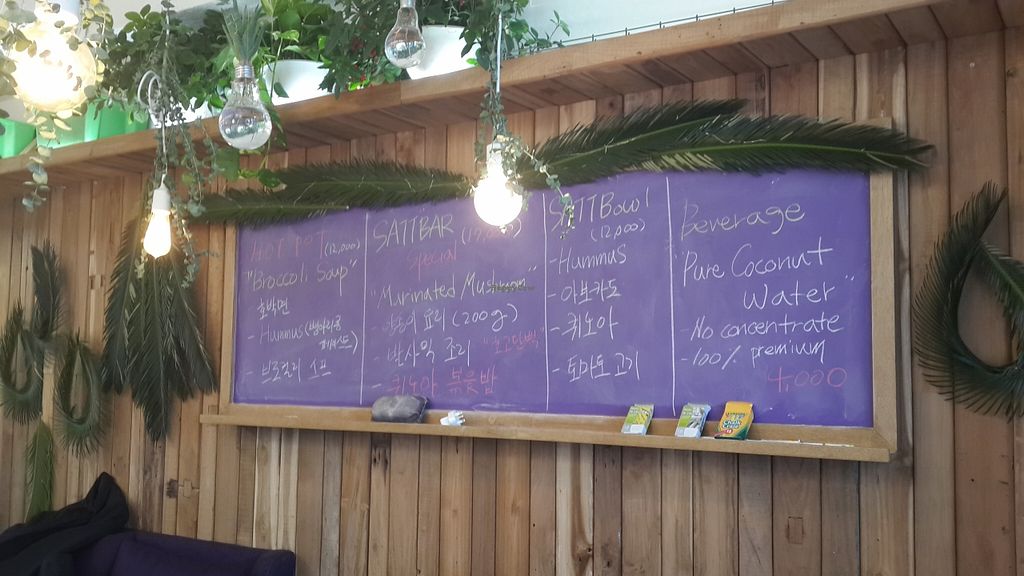 HOT POT (12,000)
"Broccoli Soup"
호박면
- Hummus
- 브로콜리 스프
SATTBAR
Special
"Marinated Mushroom"
요리 (200g)
조리 "고단백"
- 퀴노아 볶음밥
SATTBowl
(12,000)
- Hummus
- 아보카도
- 퀴노아
- 토마토
Beverage
"Pure Coconut
Water"
- No concentrate
- 100% premium
4,000